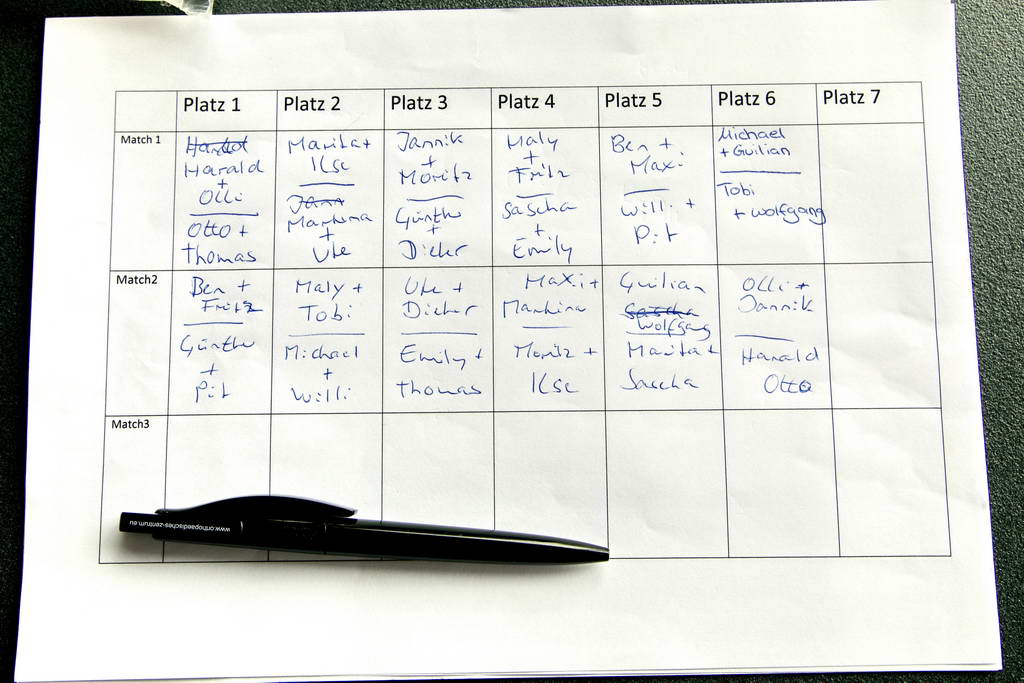 Platz 1 Platz 2 Platz 3 Platz 4 Platz 5 Platz 6 Platz 7
Match 1
Harald
+
Olli
Otto +
Thomas
Marita +
Ilse
Martina
+
Ute
Jannik
+
Moritz
Günther
+
Dieter
Maly
+
Fritz
Sascha
+
Emily
Ben +
Maxi
Willi +
Pit
Michael
+ Guilian
Tobi
+ Wolfgang
Match2
Ben +
Fritz
Günther
+
Pit
Maly +
Tobi
Michael
+
Willi
Ute +
Dieter
Emily +
Thomas
Maxi +
Martina
Moritz +
Ilse
Guilian
Sascha
Wolfgang
Marita +
Sascha
Olli +
Jannik
Harald
Otto
Match3
www.orthopaedisches-zentrum.eu